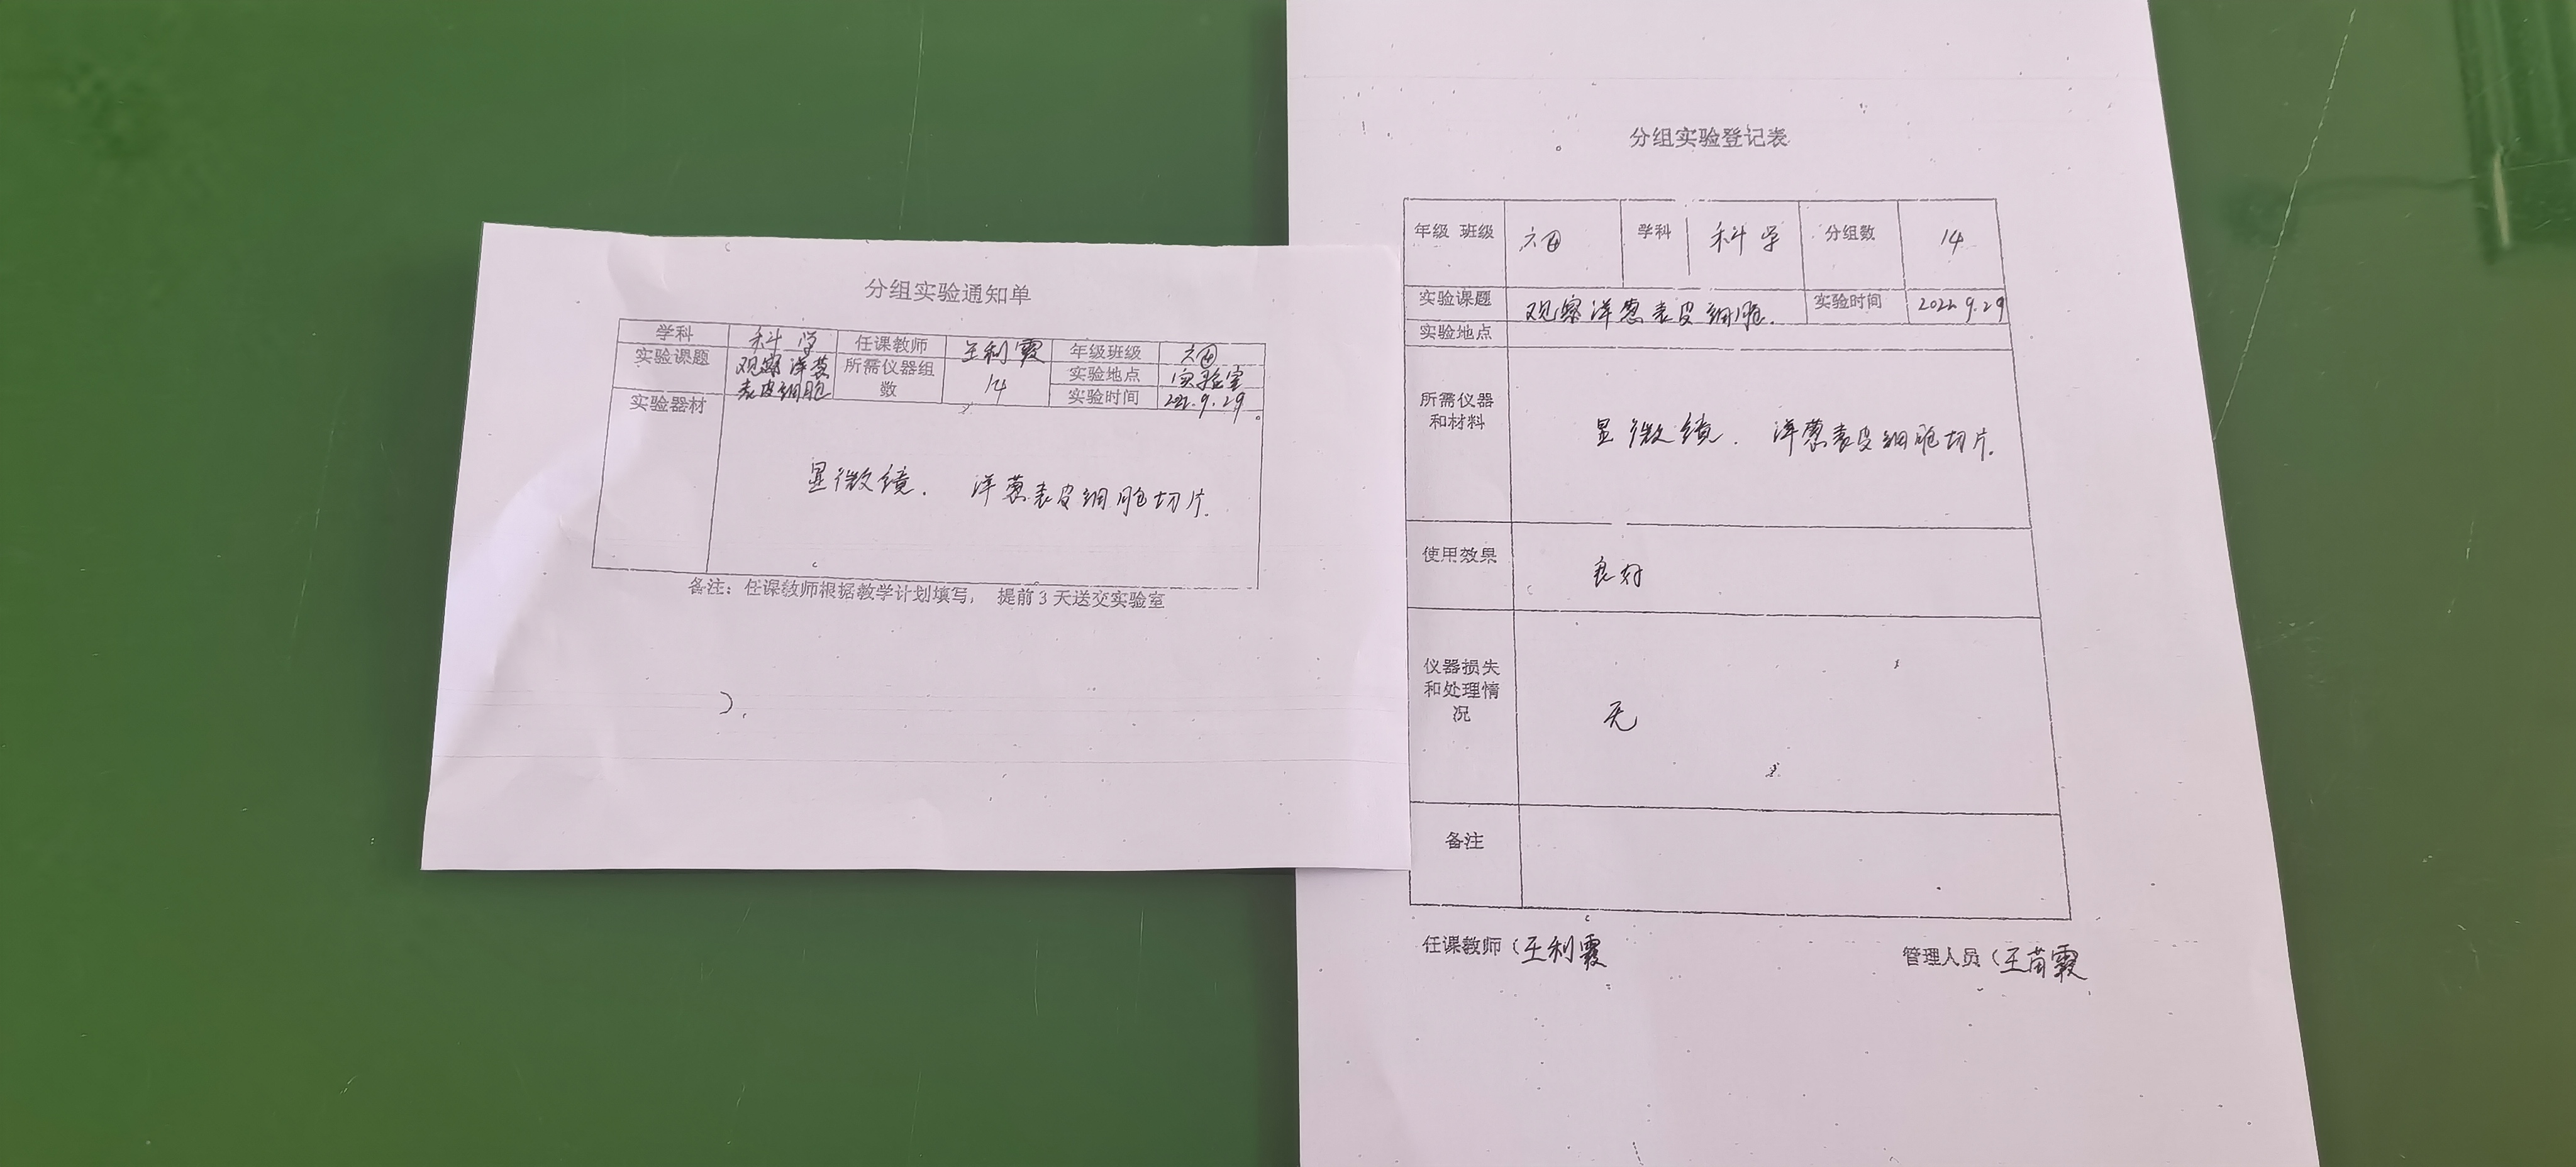 分组实验通知单
学科 科学 任课教师 王利霞 年级班级 六④
实验课题 观察洋葱表皮细胞 所需仪器组数 14 实验地点 实验室
实验时间 222.9.29
实验器材 显微镜. 洋葱表皮细胞切片.
备注：任课教师根据教学计划填写， 提前3天送交实验室
分组实验登记表
年级 班级 六④ 学科 科学 分组数 14
实验课题 观察洋葱表皮细胞. 实验时间 2022.9.29
实验地点
所需仪器
和材料
显微镜. 洋葱表皮细胞切片.
使用效果 良好
仪器损失
和处理情
况
无
备注
任课教师（王利霞
管理人员（王苗霞